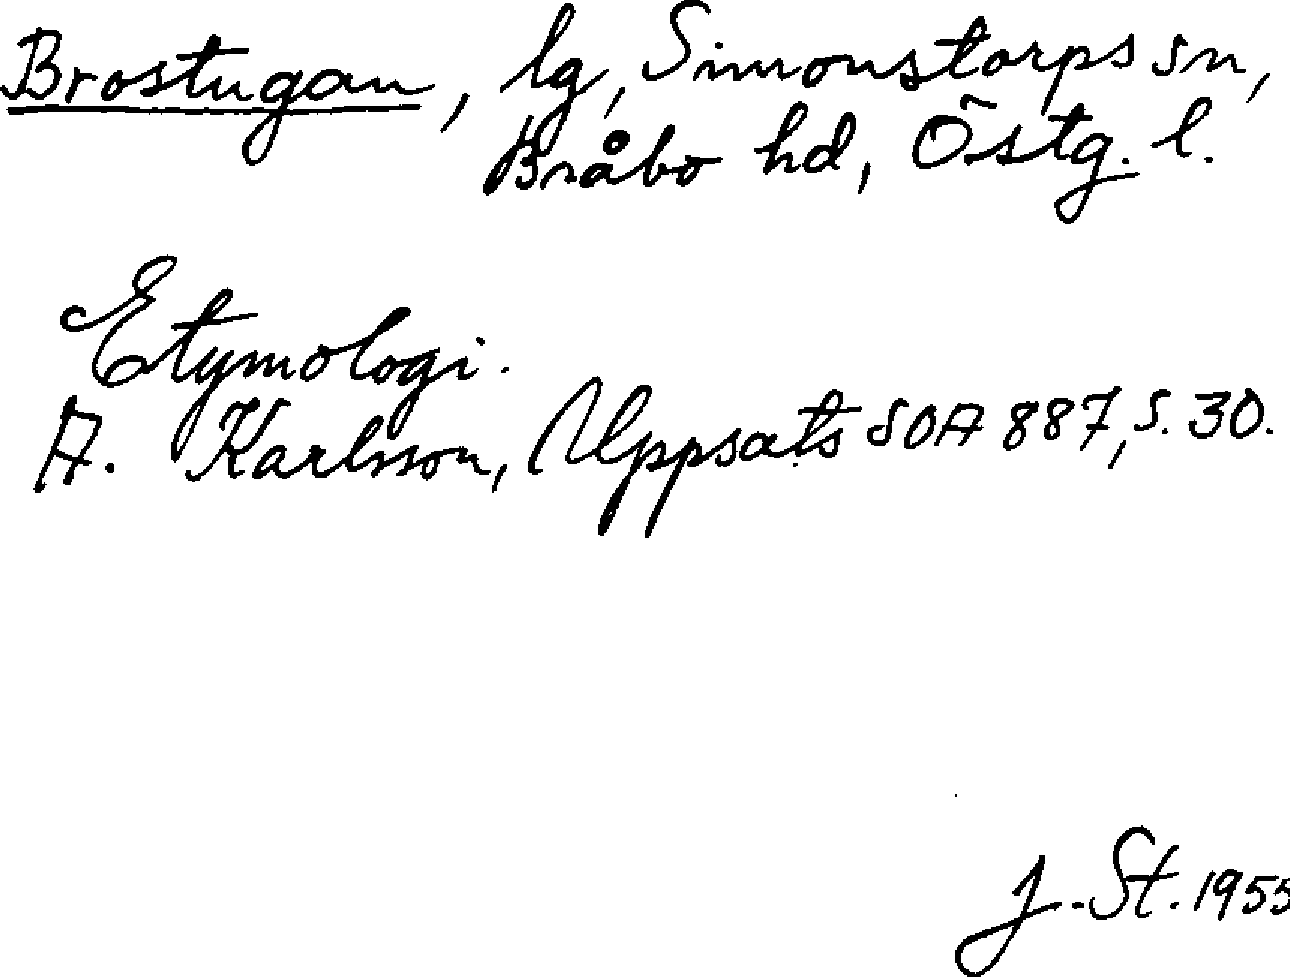 Brostugan, lg, Simonstorps sn,
Bråbo hd, Östg. l.
Etymologi.
A. Karlsson, Uppsats SOA 887, s. 30.
J. St. 1955